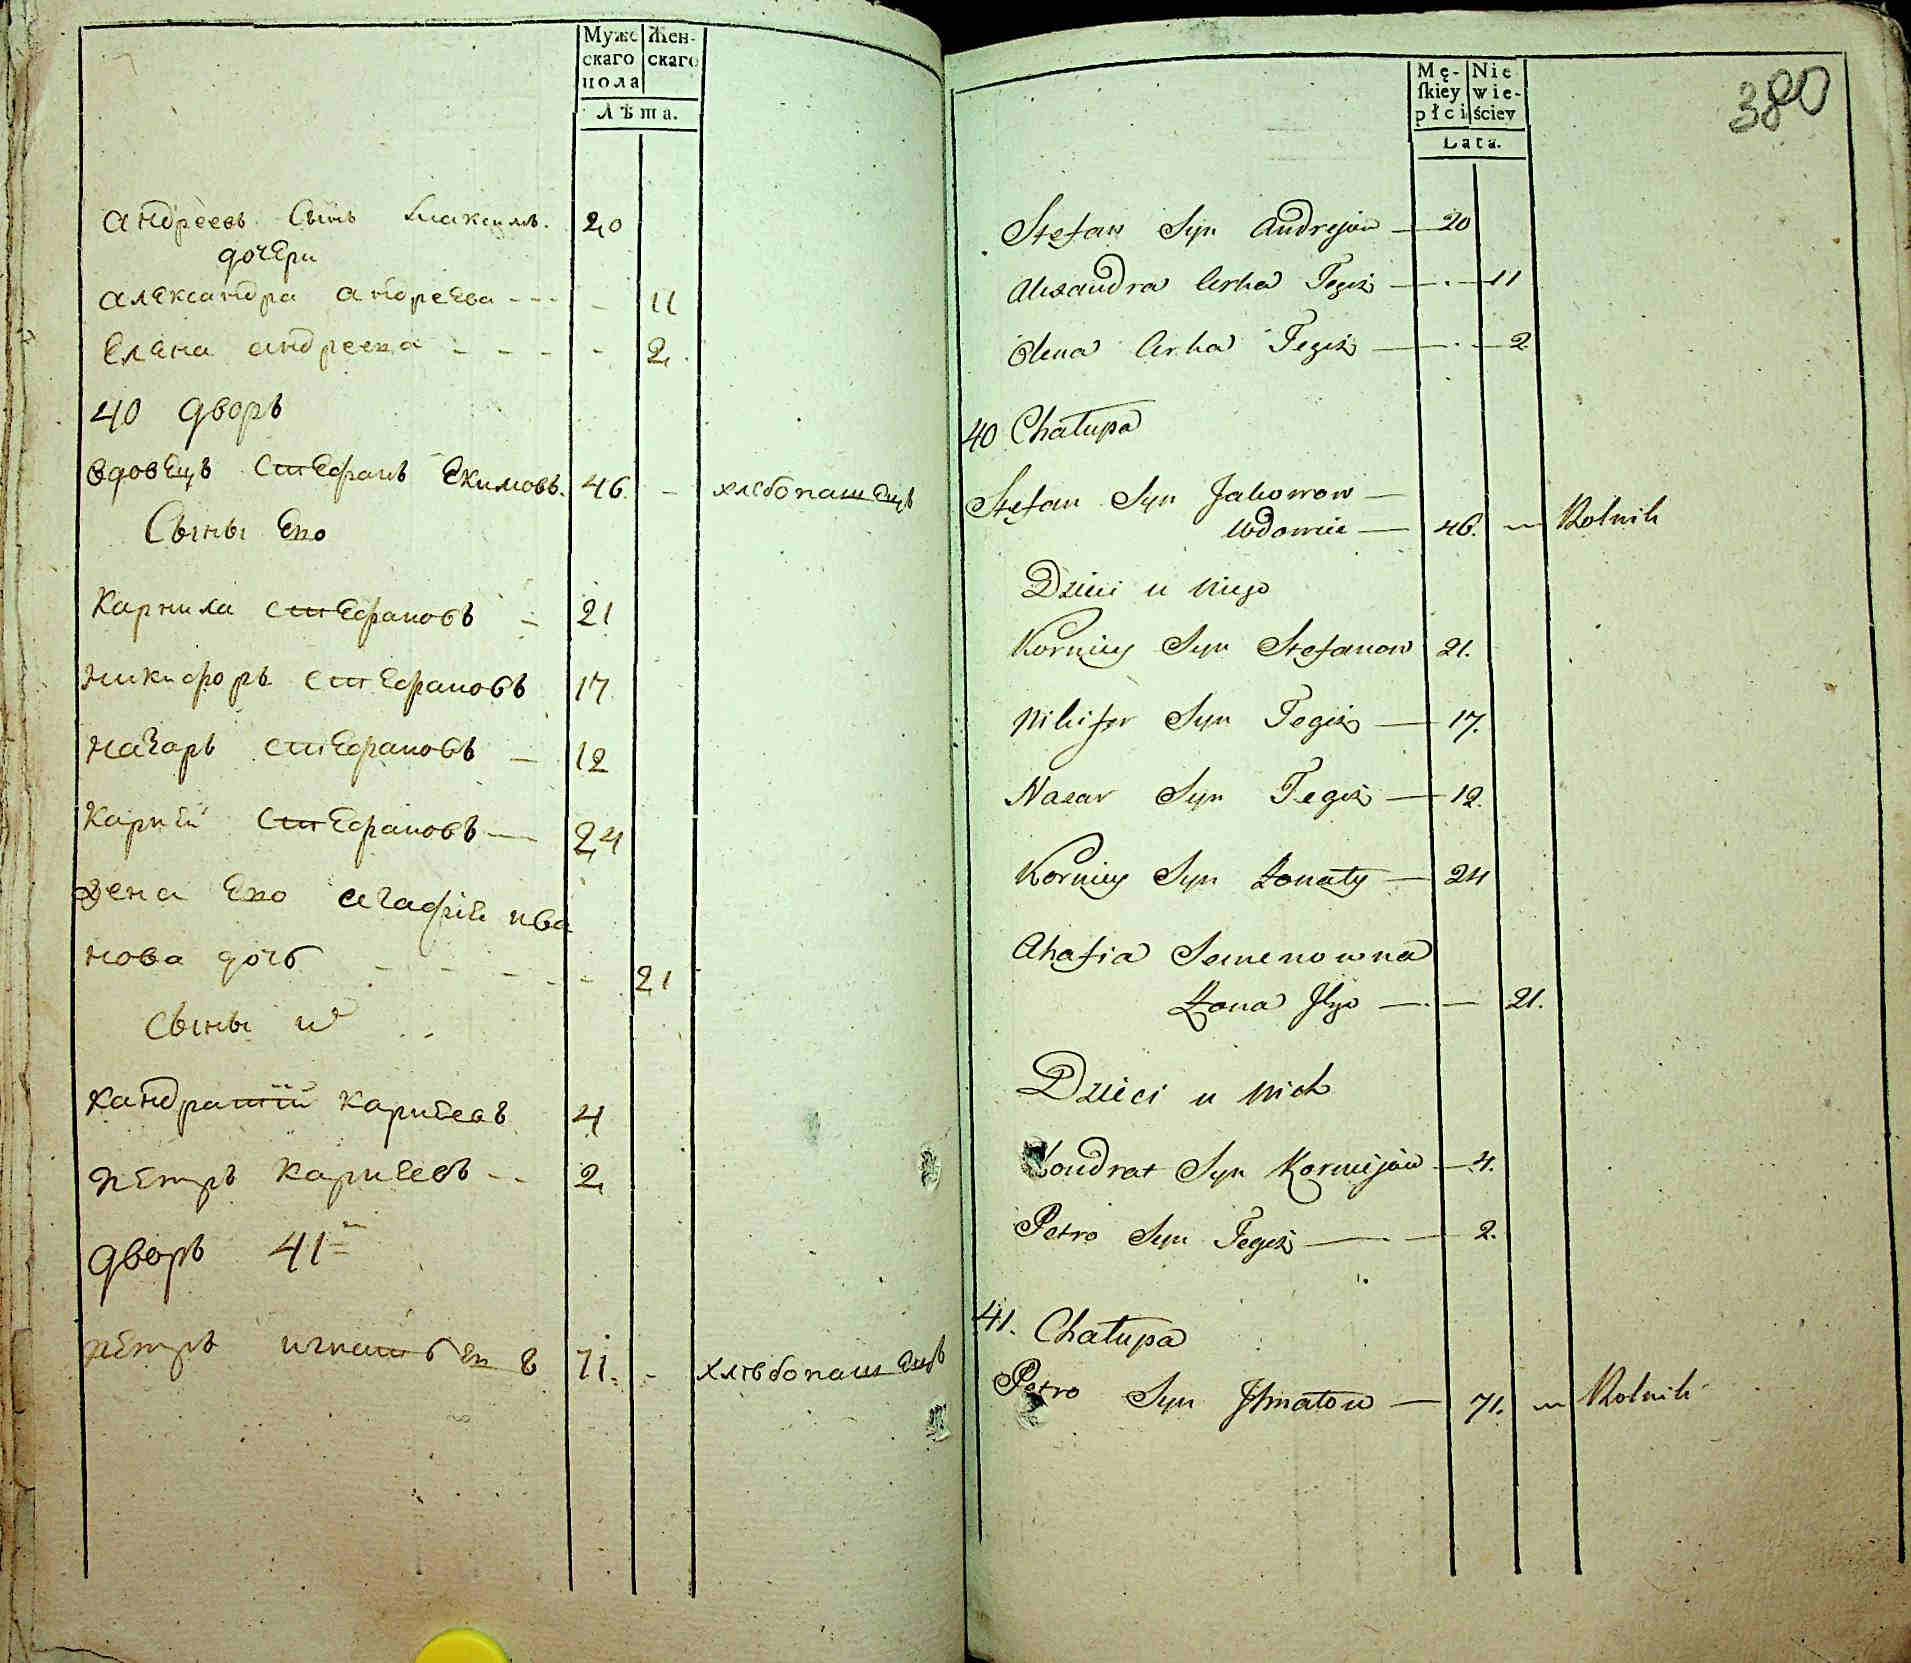 Мужс Жен-
скаго скаго
пола
Лѣта.
андреевъ Сынъ Максимъ. 20
дочери
александра андреева - - - - 11
Елена андреева - - - - 2.
40 дворъ
вдовецъ Степанъ Екимовъ. 46. - хлебопашецъ
Сыны Его
Карнила степановъ - 21
никифоръ степановъ 17
назаръ степановъ - 12
Карней Степановъ - 24
жена Его агафiя ива
нова дочь - - - - - 21
Сыны их
Кандратiй карнеевъ 4
петръ карнеевъ - - 2
дворъ 41й
петръ игнатьевъ 71. - хлѣбопашецъ
380
Mę- Nie
ſkiey wie-
płci ściey
Lata.
Stefan Syn Andrejów — 20
Alexandra Crka Tegoż — . — 11
Olena Crka Tegoż — . — 2
40 Chałupa
Stefan Syn Jakowow —
Wdowiec — 46. — Rolnik
Dzieci u niego
Korniey Syn Stefanow 21.
Nikifor Syn Tegoż — 17.
Nazar Syn Tegoż — 12.
Korniey Syn Żonaty — 24
Ahafia Semenowna
Żona Jego — . — 21.
Dzieci u nich
Kondrat Syn Korniejów — 4.
Petro Syn Tegoż — . — 2.
41. Chałupa
Petro Syn Jhnatow — 71. — Rolnik